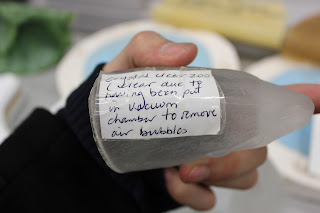 crystal clear 200
(clear due to
having been put
in vacuum
chamber to remove
air bubbles